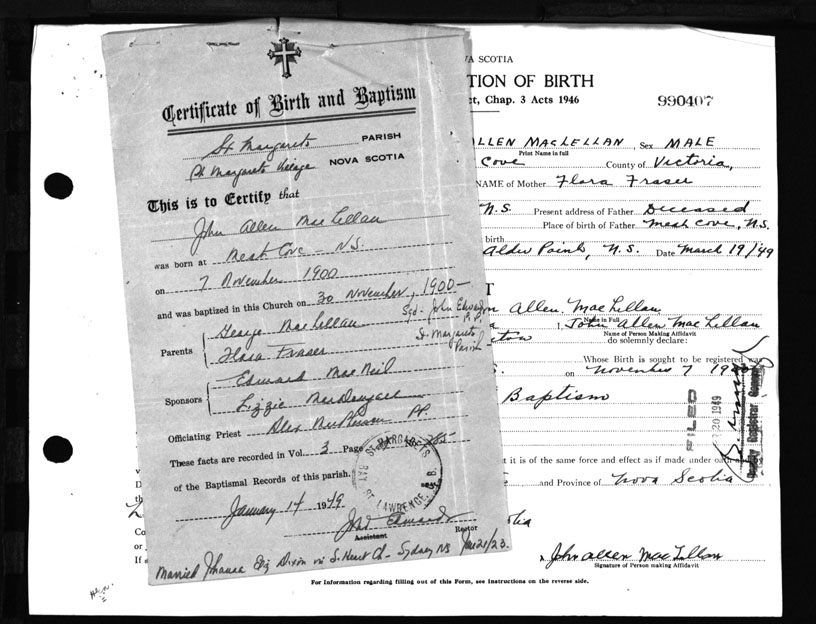 Certificate of Birth and Baptism
St Margarets PARISH
Margarets Village NOVA SCOTIA
This is to Certify that
John Allen MacLellan
was born at Meat Cove N.S.
on 7 November 1900
and was baptized in this Church on 30 November, 1900 -
Sgd - John Edward P.P.
St Margarets Parish
Parents George MacLellan
Flora Fraser
Sponsors Edward MacNeil
Lizzie MacDougall
Officiating Priest Alex McPherson PP.
These facts are recorded in Vol. 3 Page 285
of the Baptismal Records of this parish.
ST. MARGARETS
BAY ST. LAWRENCE, C.B.
January 14 1949
Assistant Rector
Married Eliz Dixon in S. Heart Ch - Sydney NS 21/23.
VA SCOTIA
TION OF BIRTH
ct, Chap. 3 Acts 1946
990407
ALLEN MACLELLAN, Sex MALE
Print Name in full
Cove County of Victoria,
NAME of Mother Flora Fraser
N.S. Present address of Father Deceased
Place of birth of Father Meat Cove, N.S.
birth
Alder Point, N.S. Date March 19/49
T
Allen MacLellan
Name in Full
I, John Allen MacLellan
Name of Person Making Affidavit
do solemnly declare:
Whose Birth is sought to be registered was
on November 7 1900
Baptism
FILED
20 1949
Deputy Registrar General
it is of the same force and effect as if made under oath
and Province of Nova Scotia
John Allen MacLellan
Signature of Person making Affidavit
For Information regarding filling out of this Form, see instructions on the reverse side.